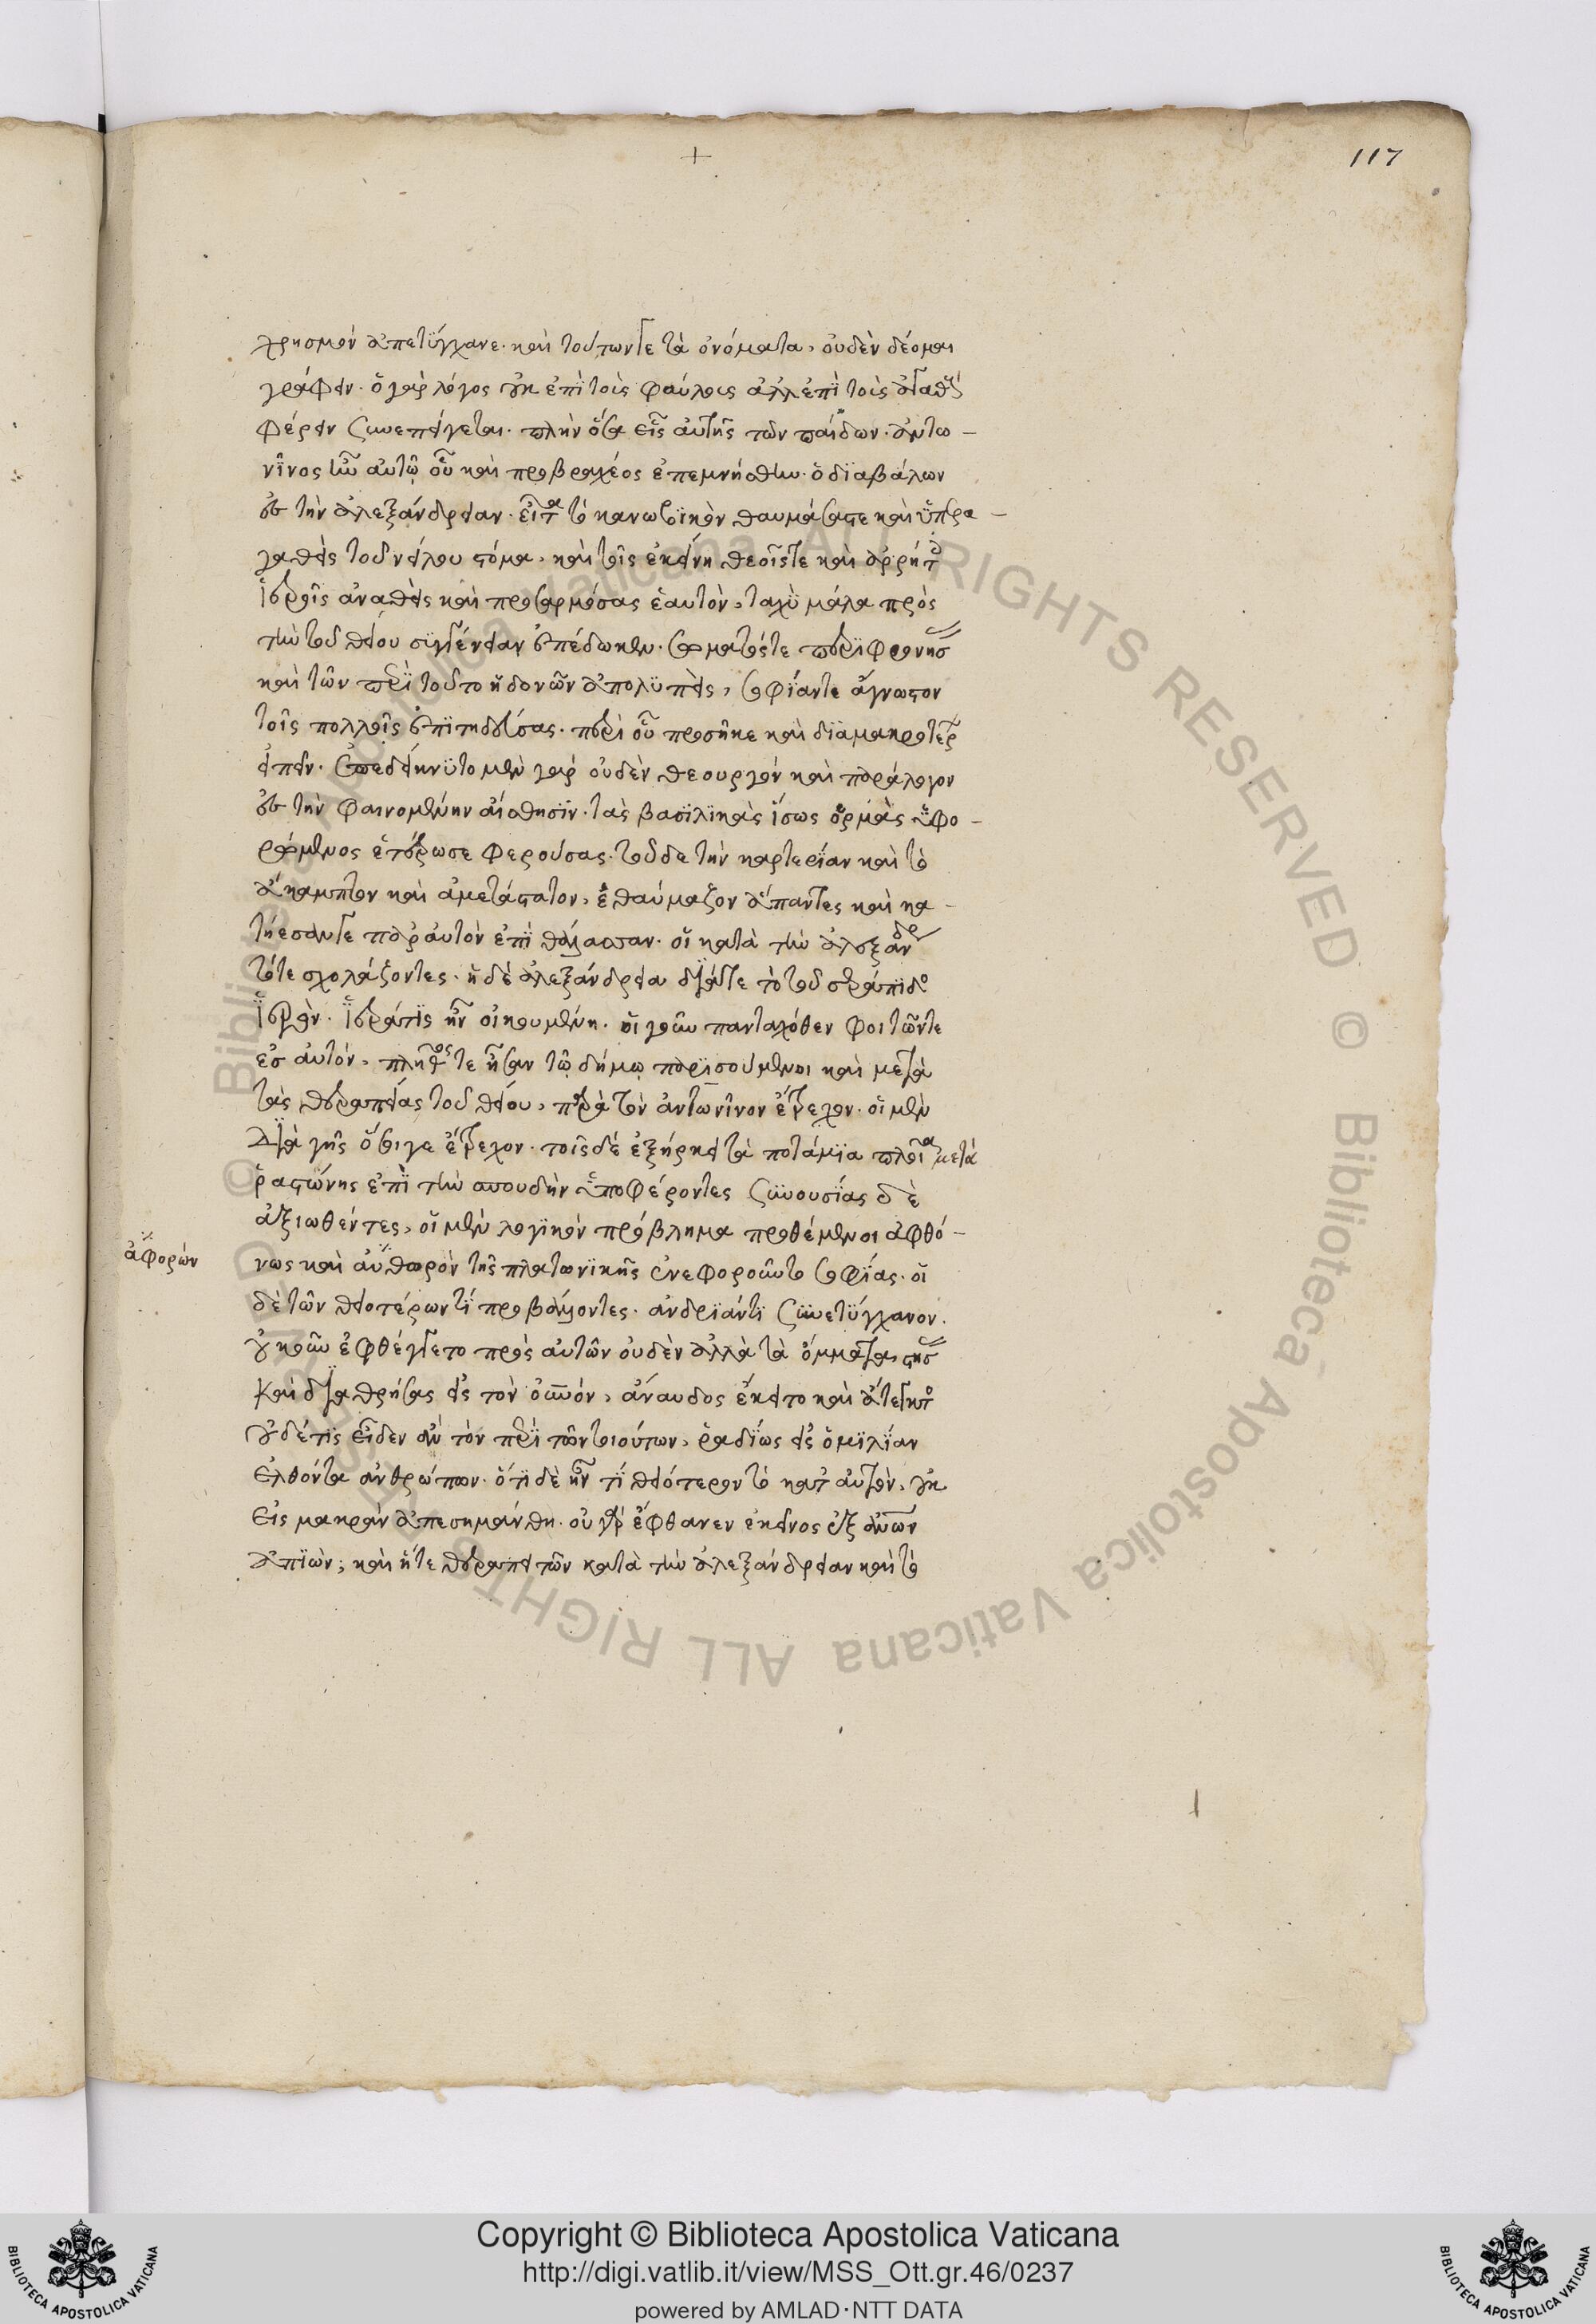 117
χρησμὸν ἀπετύγχανε. καὶ τούτων τε τὰ ὀνόματα, οὐδὲν δέομαι
γράφειν. ὁ γὰρ λόγος οὐκ ἐπὶ τοὺς φαύλους ἀλλ' ἐπὶ τοὺς ἀγαθοὺς
φέρειν συνεπείγεται. πλὴν ὅσα εἷς αὐτῆς τῶν παίδων. ἀντω-
νῖνος ἦν αὐτῷ οὗ καὶ πρὸ βραχέος ἐπεμνήσθην. ὁ διαβάλων
ἐς τὴν ἀλεξάνδρειαν. εἶτα τὸ κανωβικὸν θαυμάσας τε καὶ ὑπερα-
γασθεὶς τοῦ νείλου στόμα, καὶ τοῖς ἐκείνῃ θεοῖς τε καὶ ἀρρήτοις
ἱεροῖς ἀναθεὶς καὶ προσαρμόσας ἑαυτὸν, ταχὺ μάλα πρὸς
τὴν τοῦ θείου συγγένειαν ἐπέδωκεν. σώματός τε περιφρονήσας
καὶ τῶν περὶ τοῦτο ἡδονῶν ἀπολυθεὶς, σοφίαν τε ἄγνωστον
τοῖς πολλοῖς ἐπιτηδεύσας. περὶ οὗ προσῆκε καὶ διὰ μακροτέρων
εἰπεῖν. ἐπεδείκνυτο μὲν γὰρ οὐδὲν θεουργὸν καὶ παράλογον
ἐς τὴν φαινομένην αἴσθησιν. τὰς βασιλικὰς ἴσως ὁρμὰς ὑφο-
ρώμενος ἑτέρωσε φερούσας. τοῦ δὲ τὴν καρτερίαν καὶ τὸ
ἄκαμπτον καὶ ἀμετάστατον, ἐθαύμαζον ἅπαντες καὶ κα-
τῄεσάν τε παρ' αὐτὸν ἐπὶ θάλασσαν. οἱ κατὰ τὴν ἀλεξάνδρειαν
τότε σχολάζοντες. ἡ δὲ ἀλεξάνδρεια διά γε τὸ τοῦ σεράπιδος
ἱερὸν. ἱεράτις ἦν οἰκουμένη. οἱ γοῦν πανταχόθεν φοιτῶντε
ἐς αὐτὸν, πλῆθός τε ἦσαν τῷ δήμῳ παρισούμενοι καὶ μετὰ
τὰς θεραπείας τοῦ θείου, παρὰ τὸν ἀντωνῖνον ἔτρεχον. οἱ μὲν
διὰ γῆς ὅσοι γε ἔτρεχον. τοῖς δὲ ἐξήρκει τὰ ποτάμια πλοῖα μετὰ
ῥαστώνης ἐπὶ τὴν σπουδὴν ὑποφέροντες συνουσίας δὲ
ἀξιωθέντες, οἱ μὲν λογικὸν πρόβλημα προθέμενοι ἀφθό-
νως καὶ αὐθωρὸν τῆς πλατωνικῆς ἐνεφοροῦντο σοφίας. οἱ
ἀφορὼν
δὲ τῶν θειοτέρων τι προβάλοντες. ἀνδριάντι συνετύγχανον.
οὐκοῦν ἐφθέγγετο πρὸς αὐτῶν οὐδὲν ἀλλὰ τὰ ὄμματα στήσας
καὶ διαθρήσας εἰς τὸν οὐρανόν, ἄναυδος ἔκειτο καὶ ἄτεγκτος
οὐδέ τις εἶδεν αὐτὸν περὶ τῶν τοιούτων, ῥᾳδίως εἰς ὁμιλίαν
ἐλθόντα ἀνθρώπων. ὅτι δὲ ἦν τι θειότερον τὸ κατ' αὐτὸν, οὐκ
εἰς μακρὰν ἀπεσημάνθη. οὐ γὰρ ἔφθανεν ἐκεῖνος ἐξ ἀνθρώπων
ἀπιὼν, καὶ ἥ τε θεραπεία τῶν κατὰ τὴν ἀλεξάνδρειαν καὶ τὸ
Copyright © Biblioteca Apostolica Vaticana
http://digi.vatlib.it/view/MSS_Ott.gr.46/0237
powered by AMLAD·NTT DATA
BIBLIOTECA APOSTOLICA VATICANA
BIBLIOTECA APOSTOLICA VATICANA
© Biblioteca Apostolica Vaticana ALL RIGHTS RESERVED
© Biblioteca Apostolica Vaticana ALL RIGHTS RESERVED